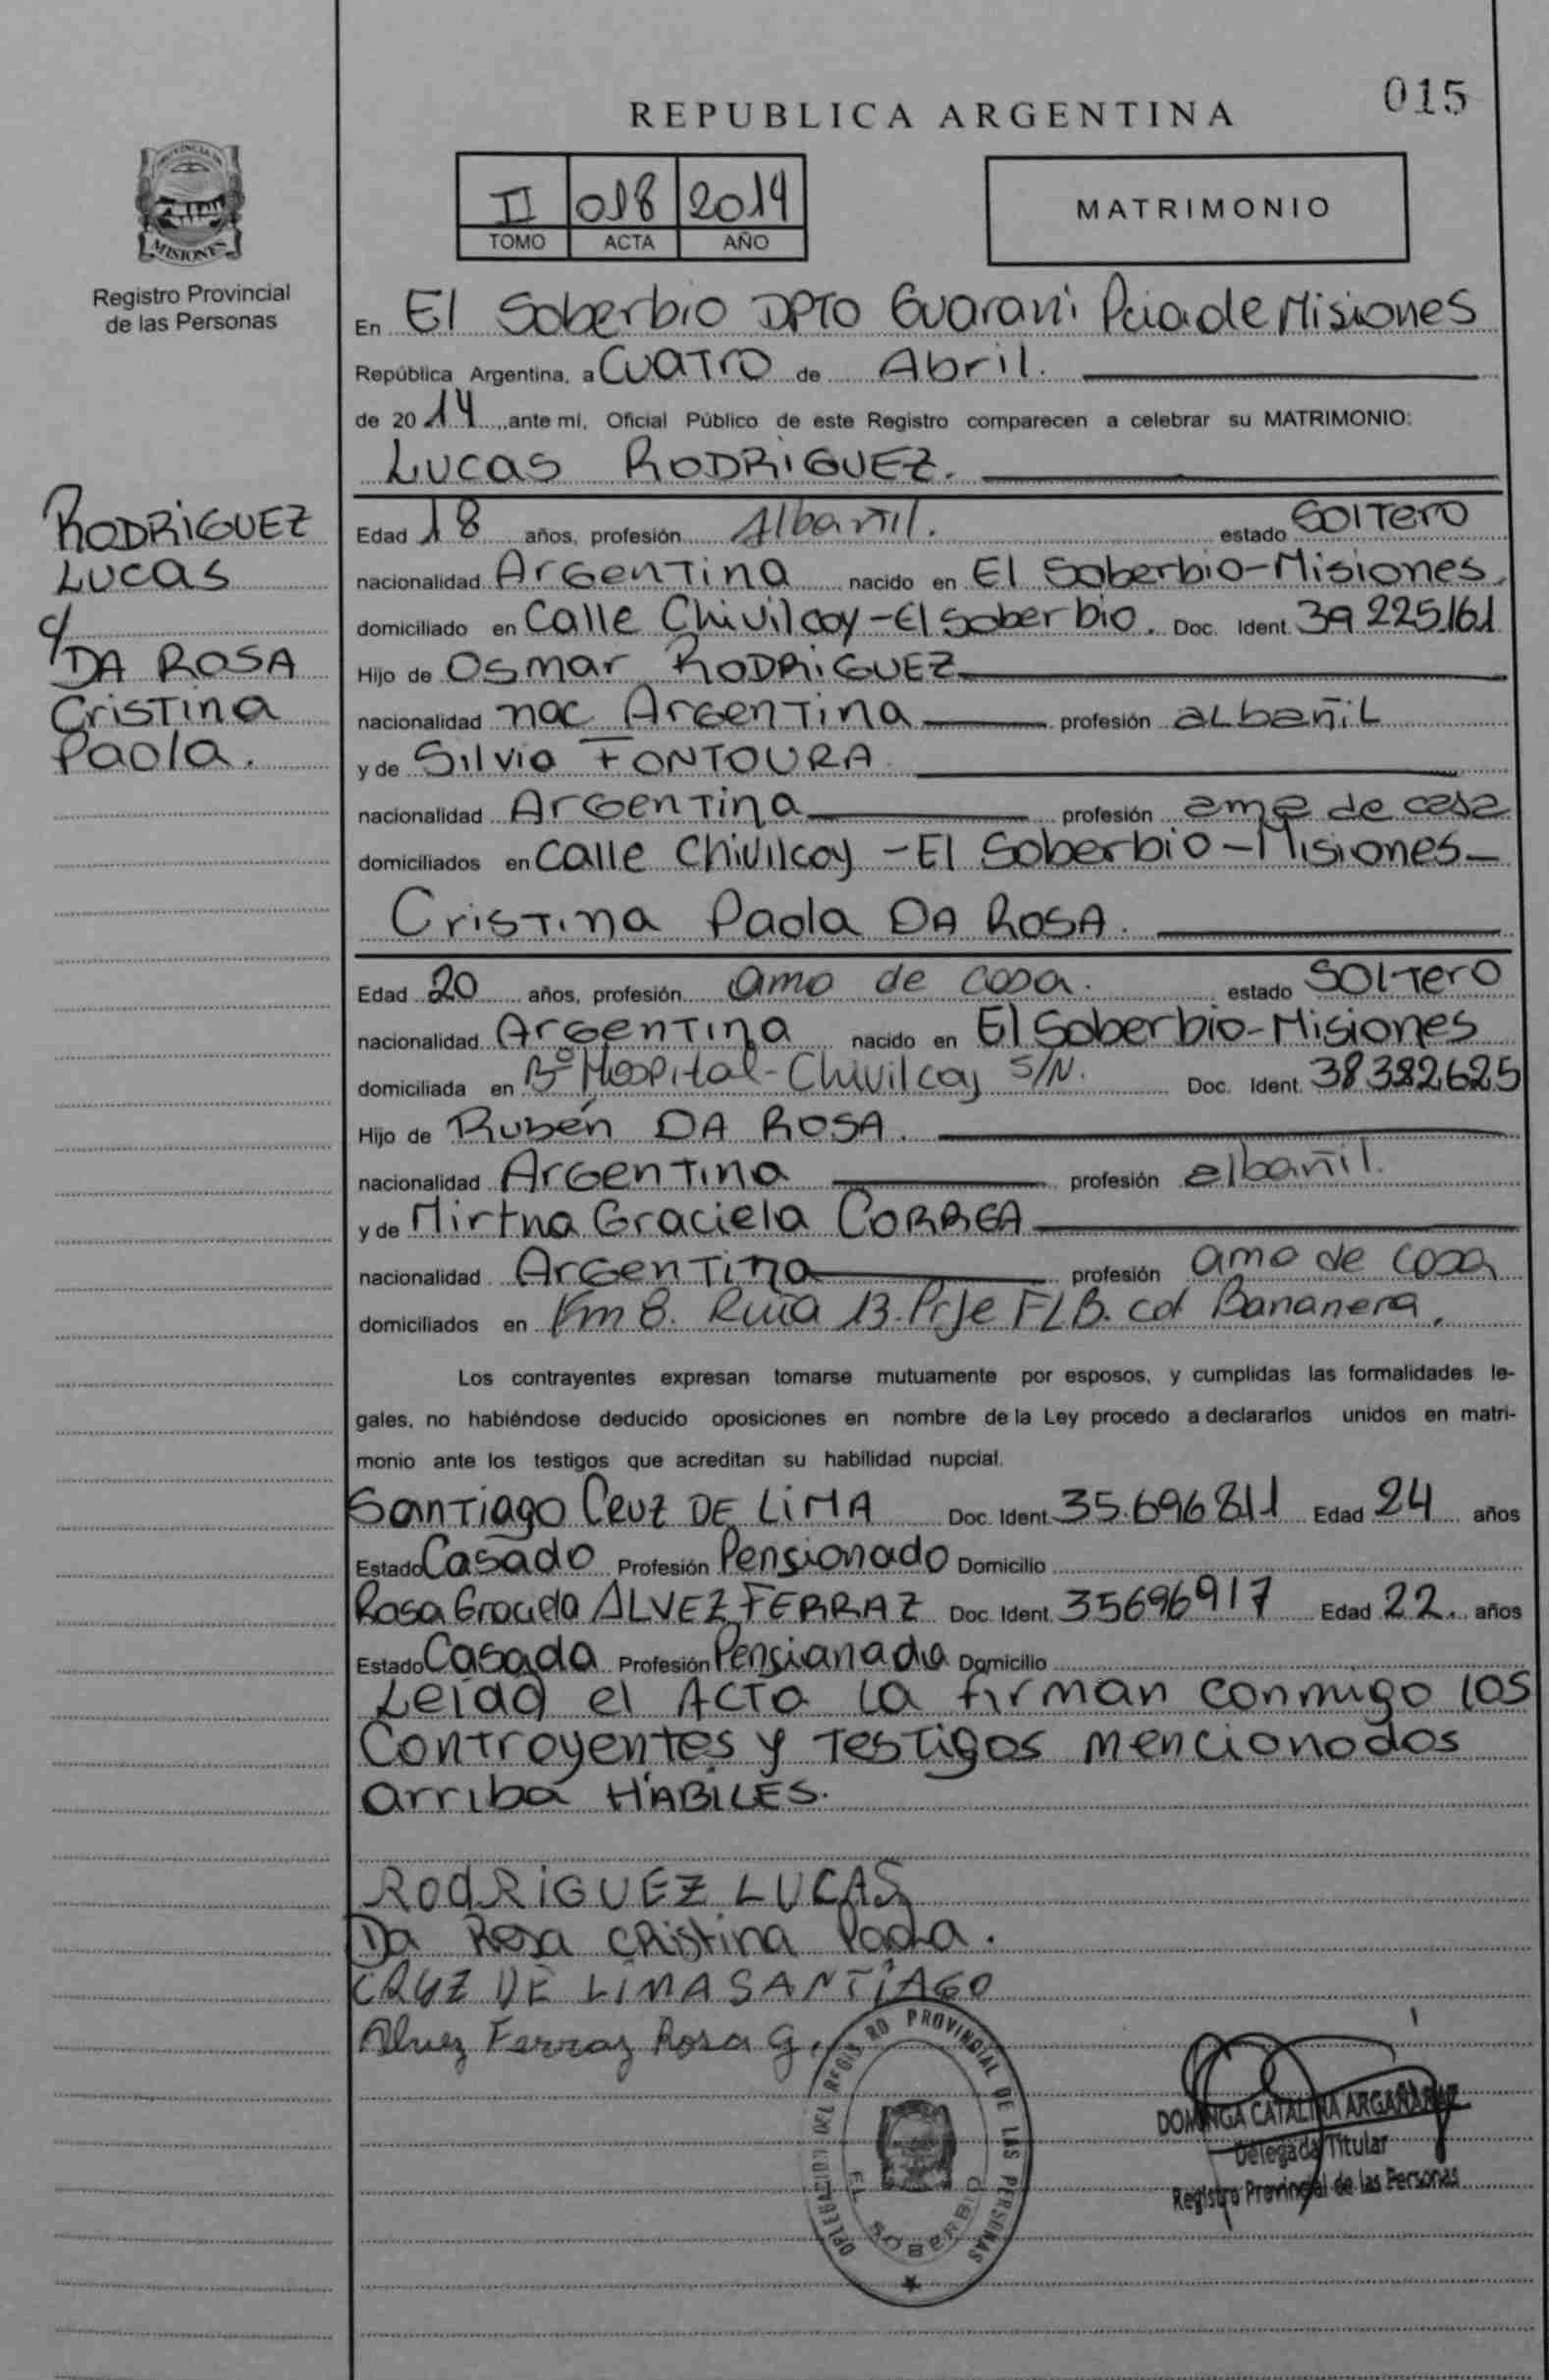 015
REPUBLICA ARGENTINA
II 018 2014
TOMO ACTA AÑO
MATRIMONIO
PROVINCIA DE
MISIONES
Registro Provincial
de las Personas
RODRIGUEZ
Lucas
c/
DA ROSA
Cristina
Paola.
En El Soberbio DPTO Guarani Pcia de Misiones
República Argentina, a Cuatro de Abril.
de 2014, ante mi, Oficial Público de este Registro comparecen a celebrar su MATRIMONIO:
Lucas RODRIGUEZ.
Edad 18 años, profesión Albañil. estado Soltero
nacionalidad Argentina nacido en El Soberbio-Misiones.
domiciliado en Calle Chivilcoy-El Soberbio. Doc. Ident. 39 225161
Hijo de Osmar RODRIGUEZ
nacionalidad nac Argentina profesión albañil
y de Silvia FONTOURA
nacionalidad Argentina profesión ama de casa
domiciliados en Calle Chivilcoy - El Soberbio - Misiones
Cristina Paola DA ROSA.
Edad 20 años, profesión ama de casa. estado Soltero
nacionalidad Argentina nacido en El Soberbio-Misiones
domiciliada en Bº Hospital - Chivilcoy S/N. Doc. Ident. 38382625
Hijo de Rubén DA ROSA.
nacionalidad Argentina profesión albañil.
y de Mirtha Graciela CORREA
nacionalidad Argentina profesión ama de casa
domiciliados en Km 8. Ruta 13. Prje FLB. cd Bananera.
Los contrayentes expresan tomarse mutuamente por esposos, y cumplidas las formalidades le-
gales, no habiéndose deducido oposiciones en nombre de la Ley procedo a declararlos unidos en matri-
monio ante los testigos que acreditan su habilidad nupcial.
Santiago Cruz DE LIMA Doc. Ident. 35.696811 Edad 24 años
Estado Casado Profesión Pensionado Domicilio
Rosa Graciela ALVEZ FERRAZ Doc. Ident. 35696917 Edad 22. años
Estado Casada Profesión Pensianada Domicilio
Leida el Acta la firman conmigo los
Contrayentes y Testigos mencionados
arriba HABILES.
RODRIGUEZ LUCAS
Da Rosa CRistina Paola.
CRUZ DE LIMA SANTIAGO
Alvez Ferraz Rosa G.
DELEGACION DEL REGISTRO PROVINCIAL DE LAS PERSONAS
EL SOBERBIO
DOMINGA CATALINA ARGAÑARAZ
Delegada Titular
Registro Provincial de las Personas